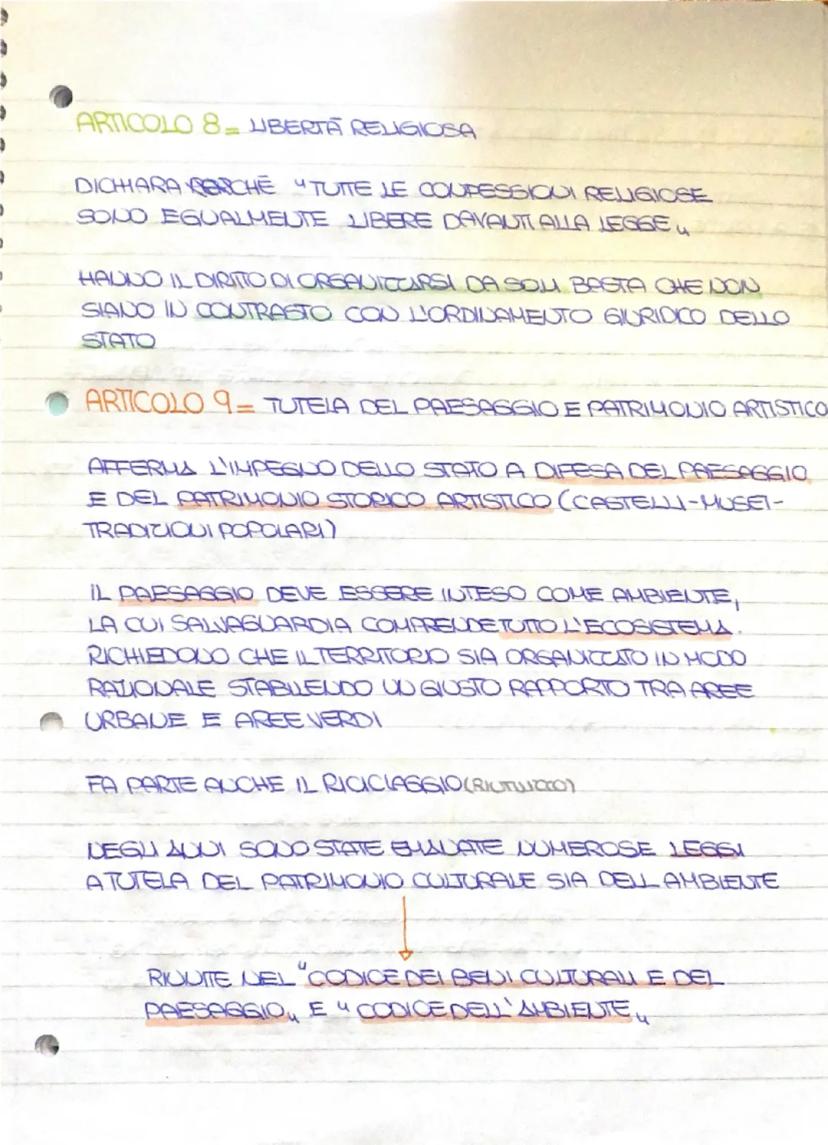 ARTICOLO 8 = LIBERTÀ RELIGIOSA
DICHIARA PERCHÈ "TUTTE LE CONFESSIONI RELIGIOSE
SONO EGUALMENTE LIBERE DAVANTI ALLA LEGGE"
HANNO IL DIRITTO DI ORGANIZZARSI DA SOLI BASTA CHE NON
SIANO IN CONTRASTO CON L'ORDINAMENTO GIURIDICO DELLO
STATO
ARTICOLO 9 = TUTELA DEL PAESAGGIO E PATRIMONIO ARTISTICO
AFFERMA L'IMPEGNO DELLO STATO A DIFESA DEL PAESAGGIO
E DEL PATRIMONIO STORICO ARTISTICO (CASTELLI-MUSEI-
TRADIZIONI POPOLARI)
IL PAESAGGIO DEVE ESSERE INTESO COME AMBIENTE,
LA CUI SALVAGUARDIA COMPRENDE TUTTO L'ECOSISTEMA.
RICHIEDONO CHE IL TERRITORIO SIA ORGANIZZATO IN MODO
RAZIONALE STABILENDO UN GIUSTO RAPPORTO TRA AREE
URBANE E AREE VERDI
FA PARTE ANCHE IL RICICLAGGIO (RIUTILIZZO)
NEGLI ANNI SONO STATE EMANATE NUMEROSE LEGGI
A TUTELA DEL PATRIMONIO CULTURALE SIA DELL AMBIENTE
RIUNITE NEL "CODICE DEI BENI CULTURALI E DEL
PAESAGGIO" E "CODICE DELL'AMBIENTE"